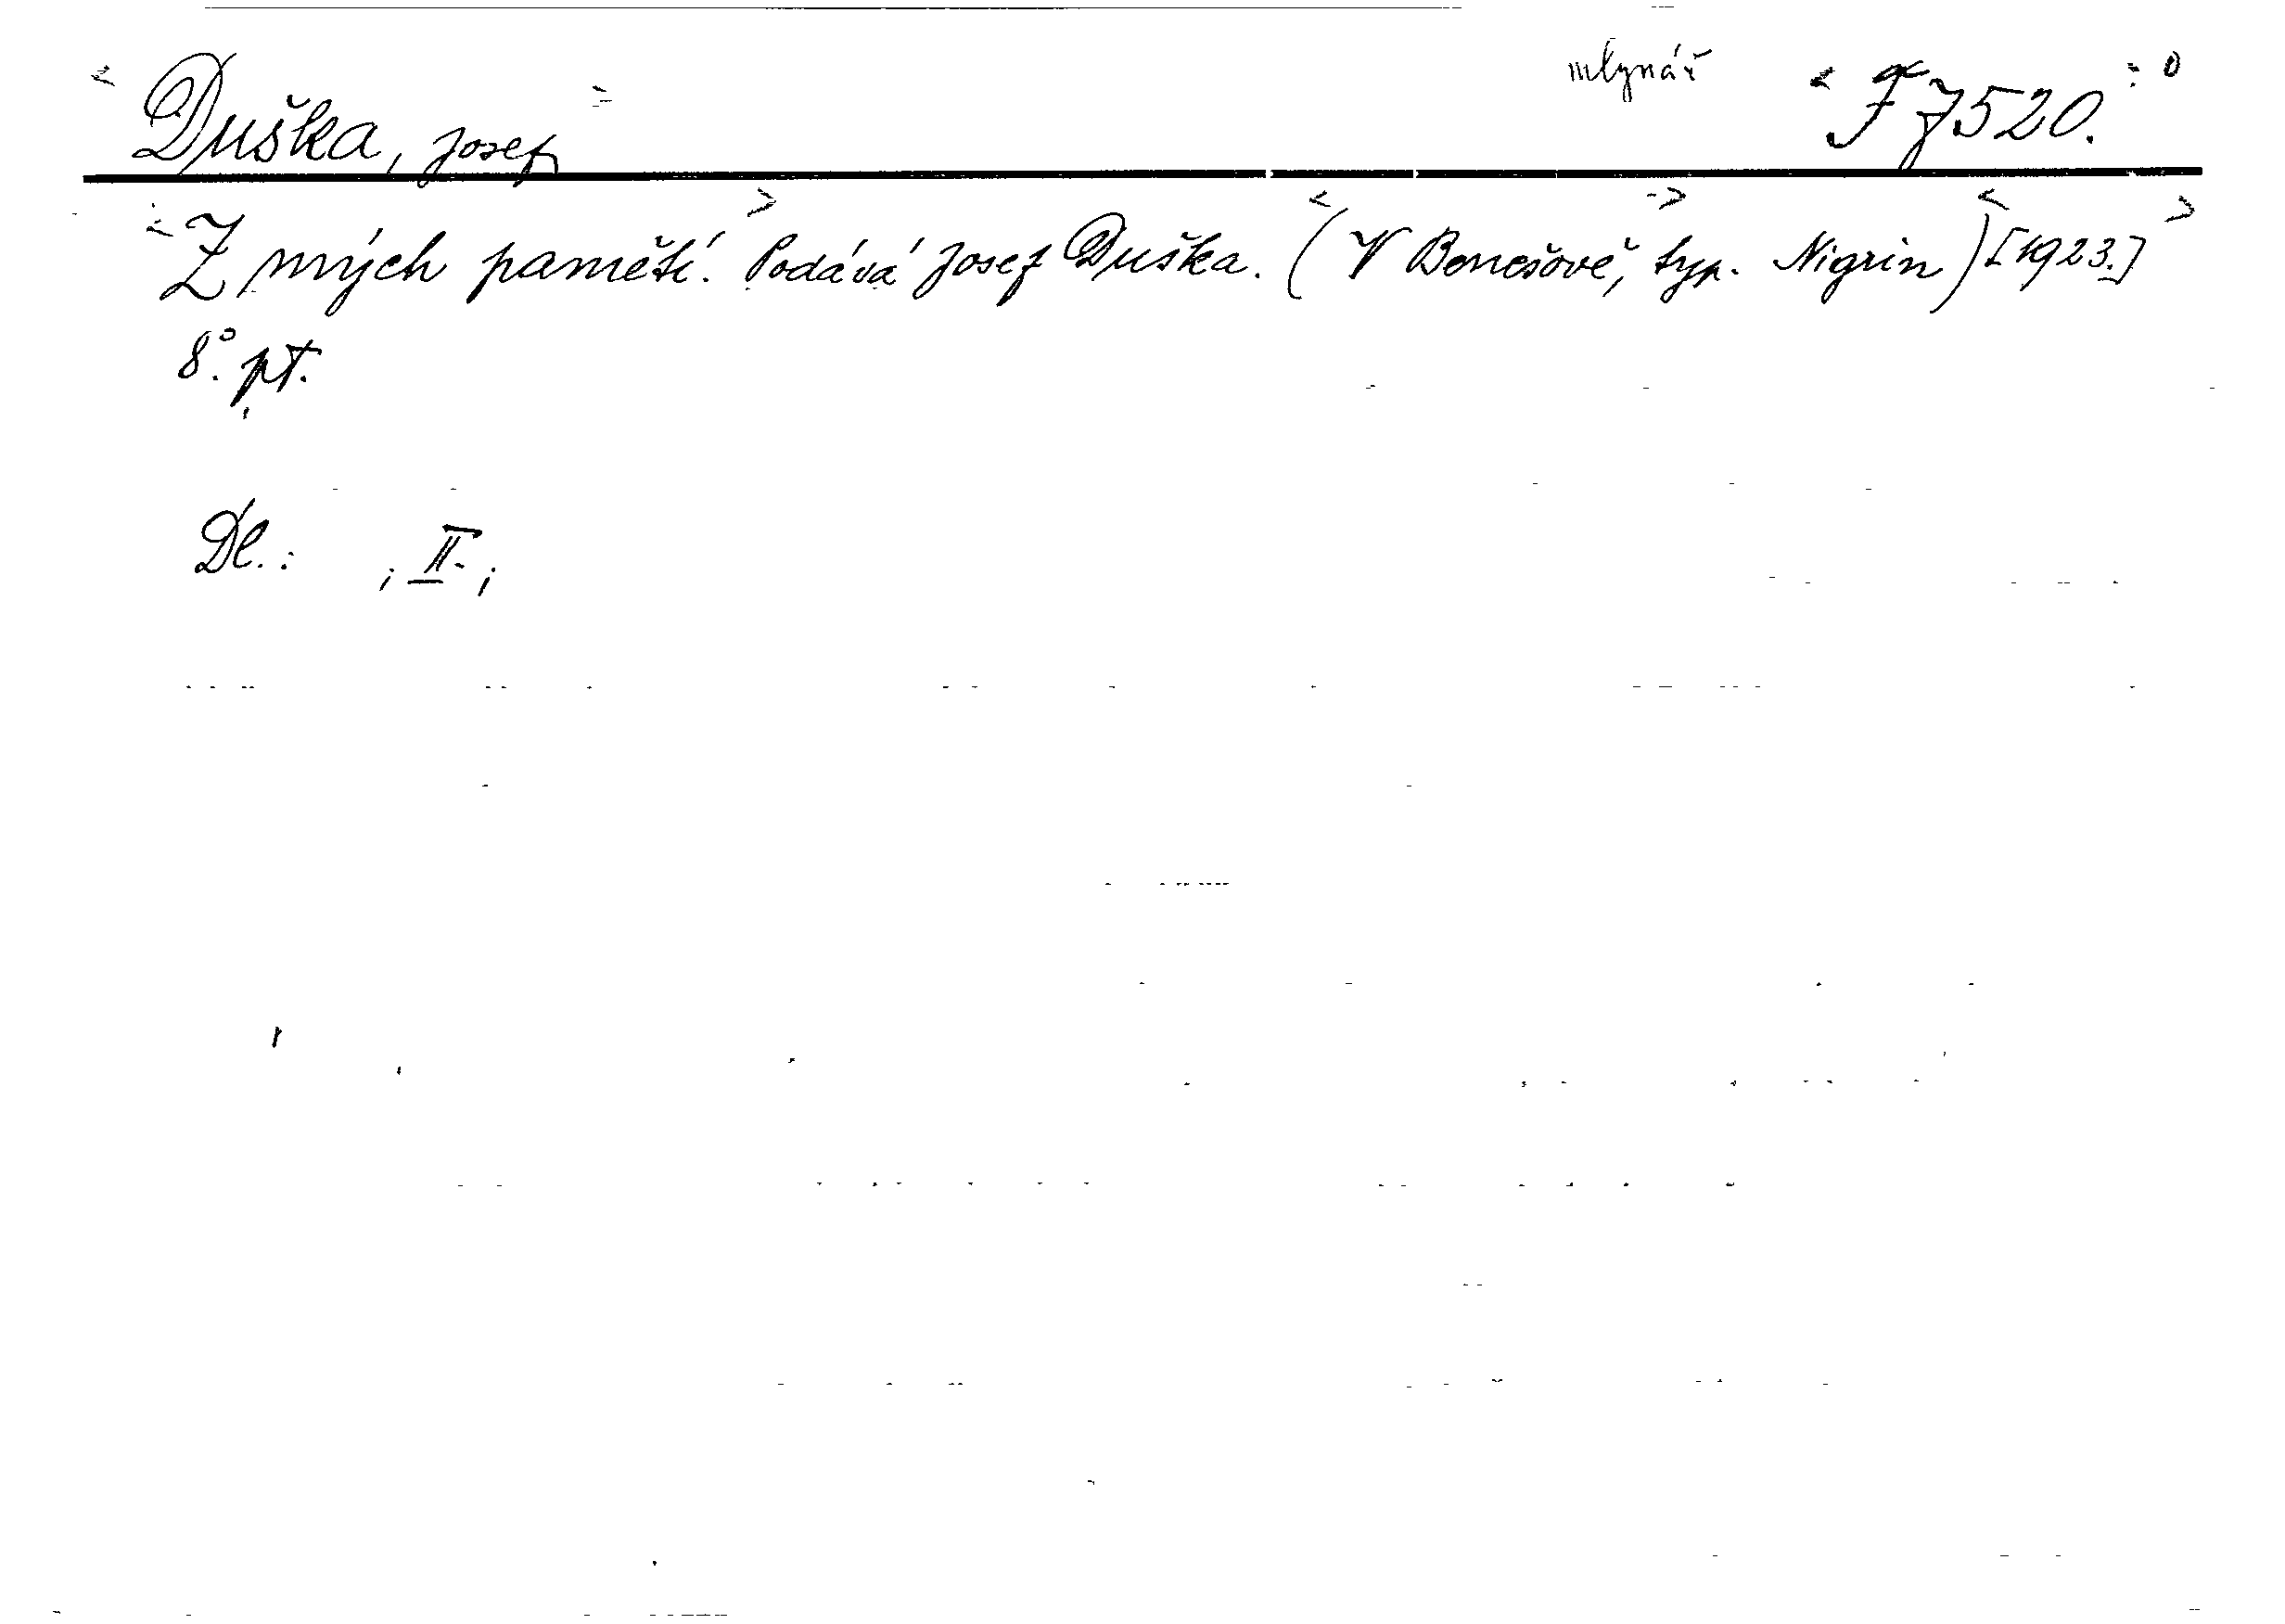 Duška, Josef mlynář F 7520.
Z mých pamětí. Podává Josef Duška. (V Benešově, typ. Nigrin) [1923.]
8°. pt.
Dl.: ; II. ;